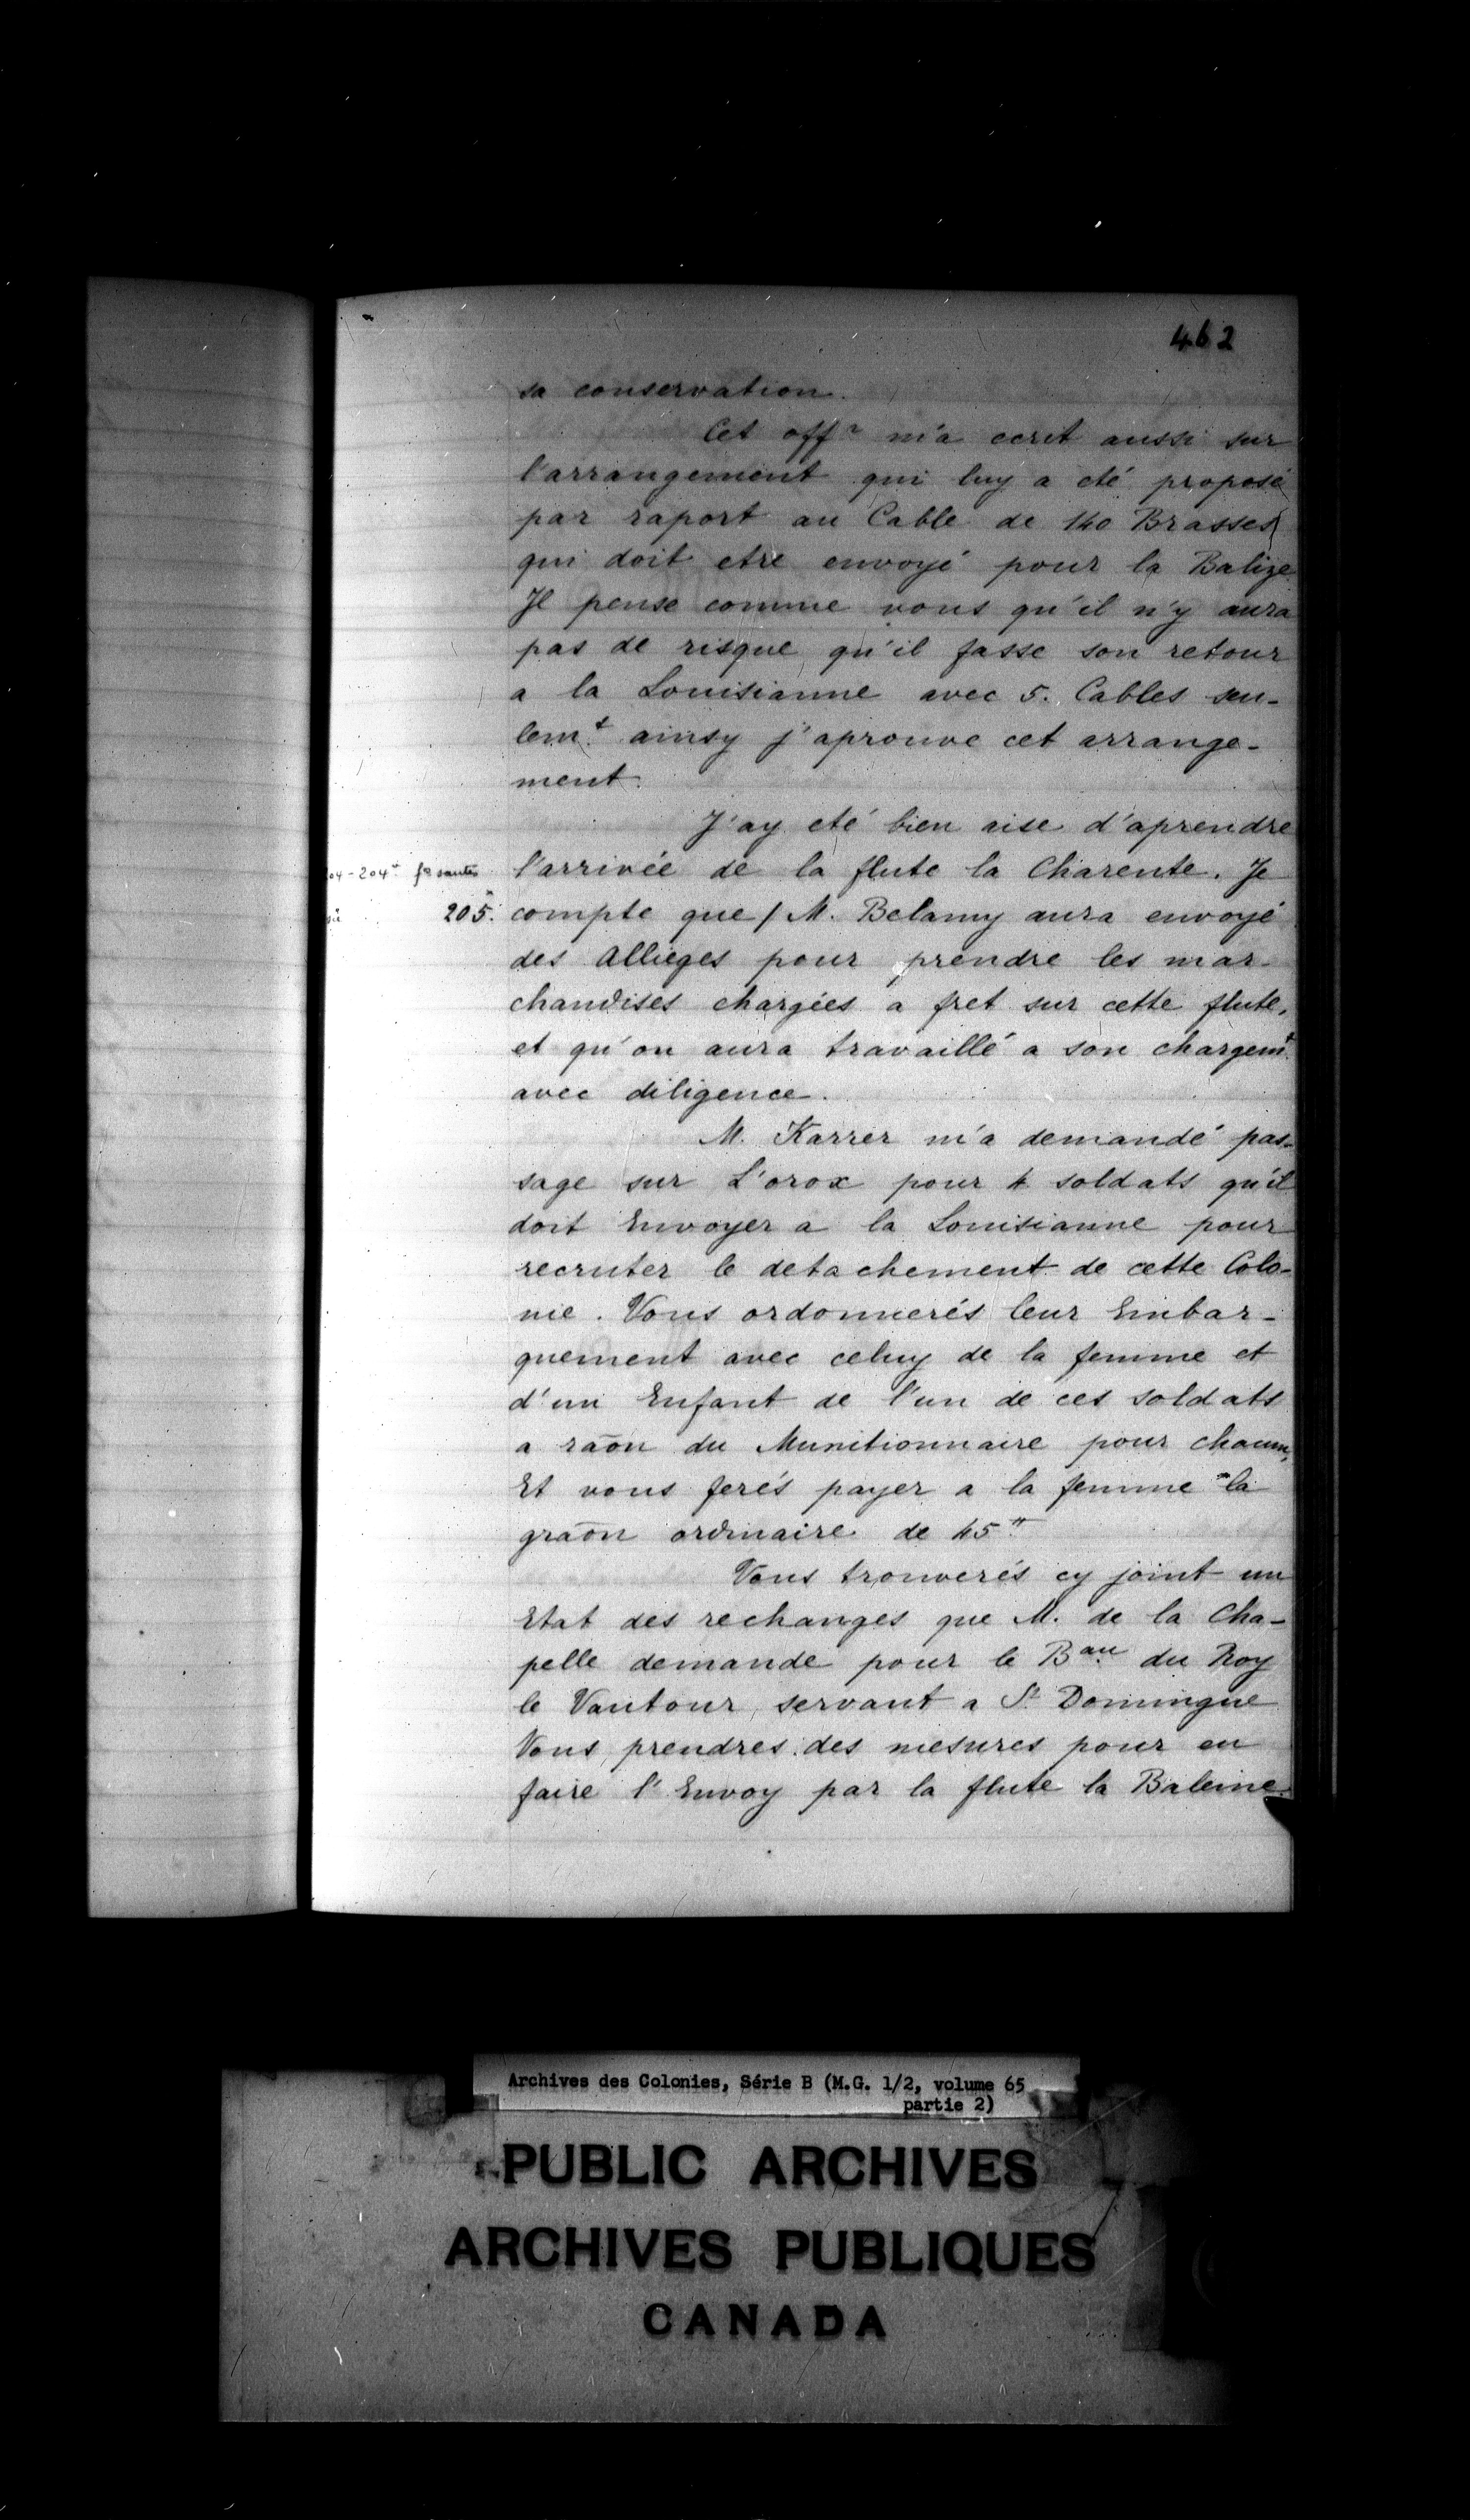 462
sa conservation.
Cet offr m'a ecrit aussi sur
l'arrangement qui luy a eté proposé
par raport au Cable de 140 Brasses
qui doit etre envoyé pour la Balize
Je pense comme vous qu'il n'y aura
pas de risque qu'il fasse son retour
a la Louisianne avec 5. Cables seu-
lemt ainsy j'aprouve cet arrange-
ment.
J'ay eté bien aise d'aprendre
04-204 fo sautés l'arrivée de la flute la Charente. Je
205. compte que / M. Belamy aura envoyé
des Allieges pour prendre les mar-
chandises chargées a fret sur cette flute,
et qu'on aura travaillé a son chargemt
avec diligence.
M. Karrer m'a demandé pas-
sage sur L'orox pour 4 soldats qu'il
doit Envoyer a la Louisianne pour
recruter le detachement de cette Colo-
nie. Vous ordonnerés leur Embar-
quement avec celuy de la femme et
d'un Enfant de l'un de ces soldats
a raōn du Munitionnaire pour chacun,
Et vous ferés payer a la femme la
graōn ordinaire de 45tt
Vous trouverés cy joint un
Etat des rechanges que M. de la Cha-
pelle demande pour le Bau du Roy
le Vautour servant a St Domingue
Vous prendres des mesures pour en
faire l'Envoy par la flute la Baleine.
Archives des Colonies, Série B (M.G. 1/2, volume 65
partie 2)
PUBLIC ARCHIVES
ARCHIVES PUBLIQUES
CANADA